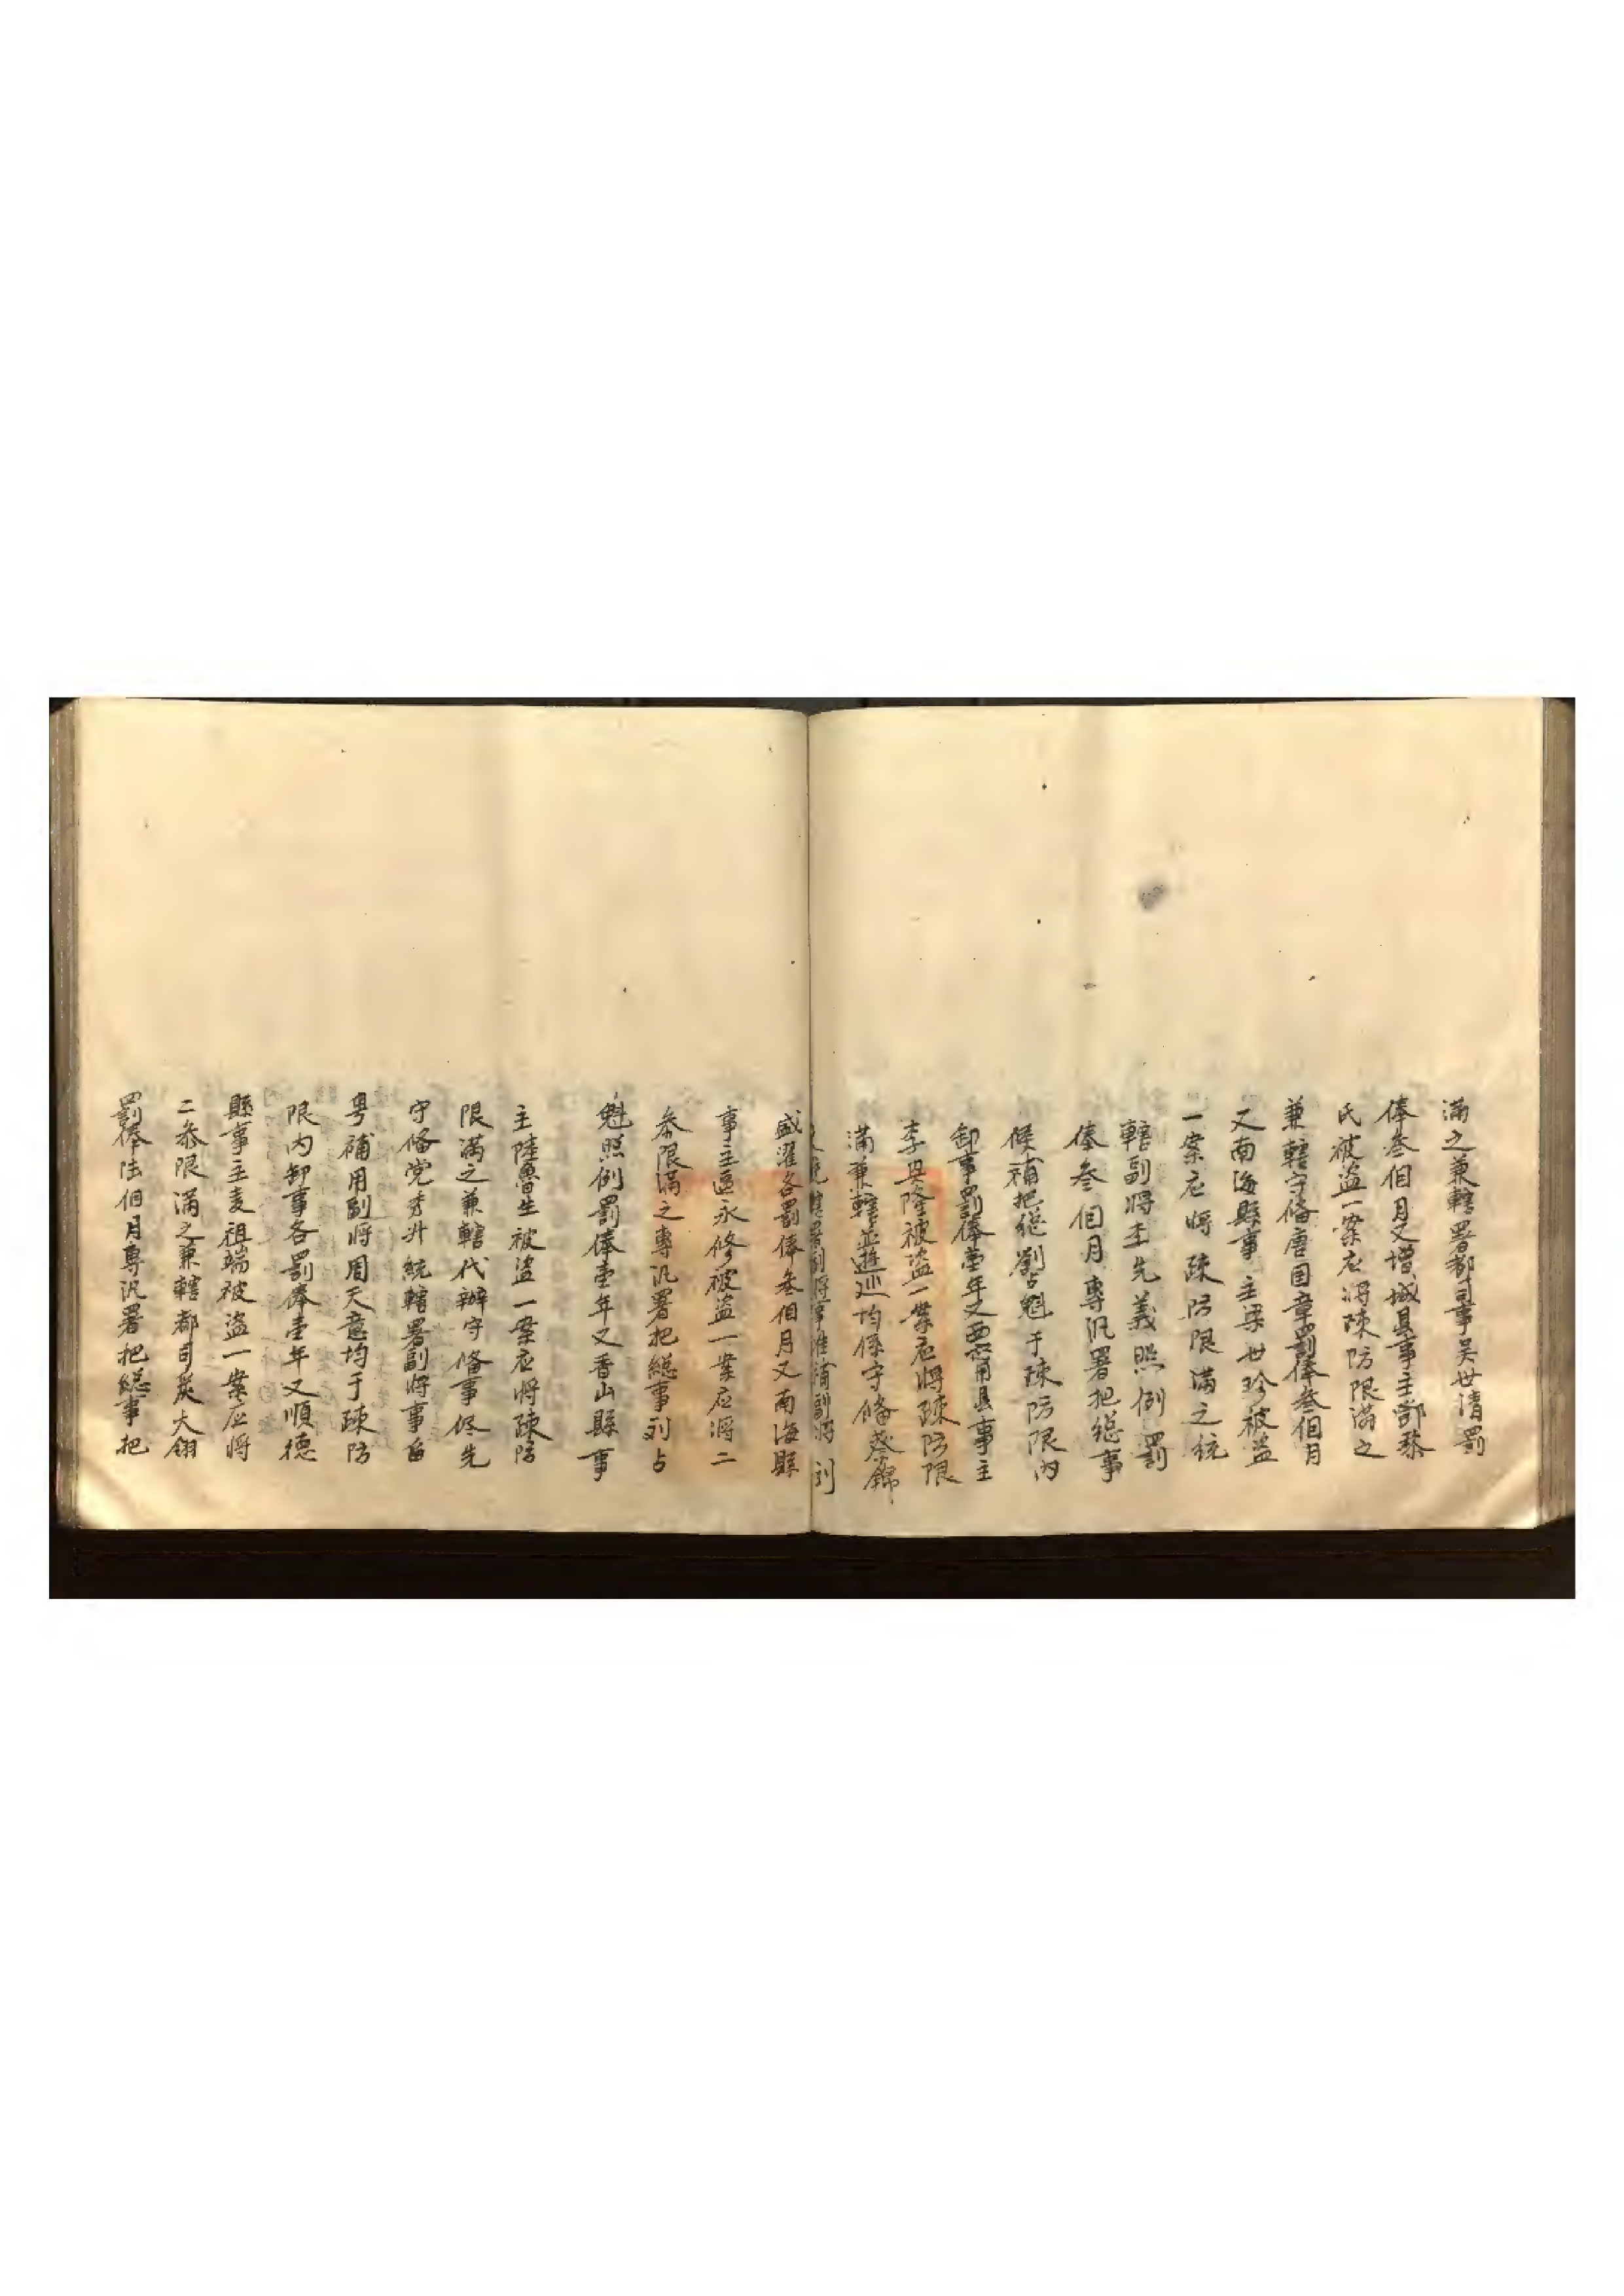 滿之兼轄署都司事吴世清罰
俸叁佀月又增城县事主鄧黎
氏被盗一案应將疎防限滿之
兼轄守俻唐国章罰俸叁佀月
又南海縣事主梁世珍被盗
一案应將疎防限滿之统
轄副將李先義照例罰
俸叁佀月專汛署把總事
候補把總劉占魁于疎防限內
卸事罰俸壹年又要甫县事主
李興隆被盗一案应將疎防限
滿兼轄並遊巡均係守俻蔡錦
統轄署副將事准補副將
盛濯各罰俸叁佀月又南海縣
事主區永修被盗一案应將二
叅限滿之專汛署把總事刘占
魁照例罰俸壹年又香山縣事
主陸魯生被盗一案应將疎防
限滿之兼轄代辦守俻事侭先
守俻党秀升統轄署副將事留
粤補用副將周天意均于疎防
限內卸事各罰俸壹年又順德
縣事主麦祖端被盗一案应將
二叅限滿之兼轄都司炭大翎
罰俸陆佀月專汛署把總事把